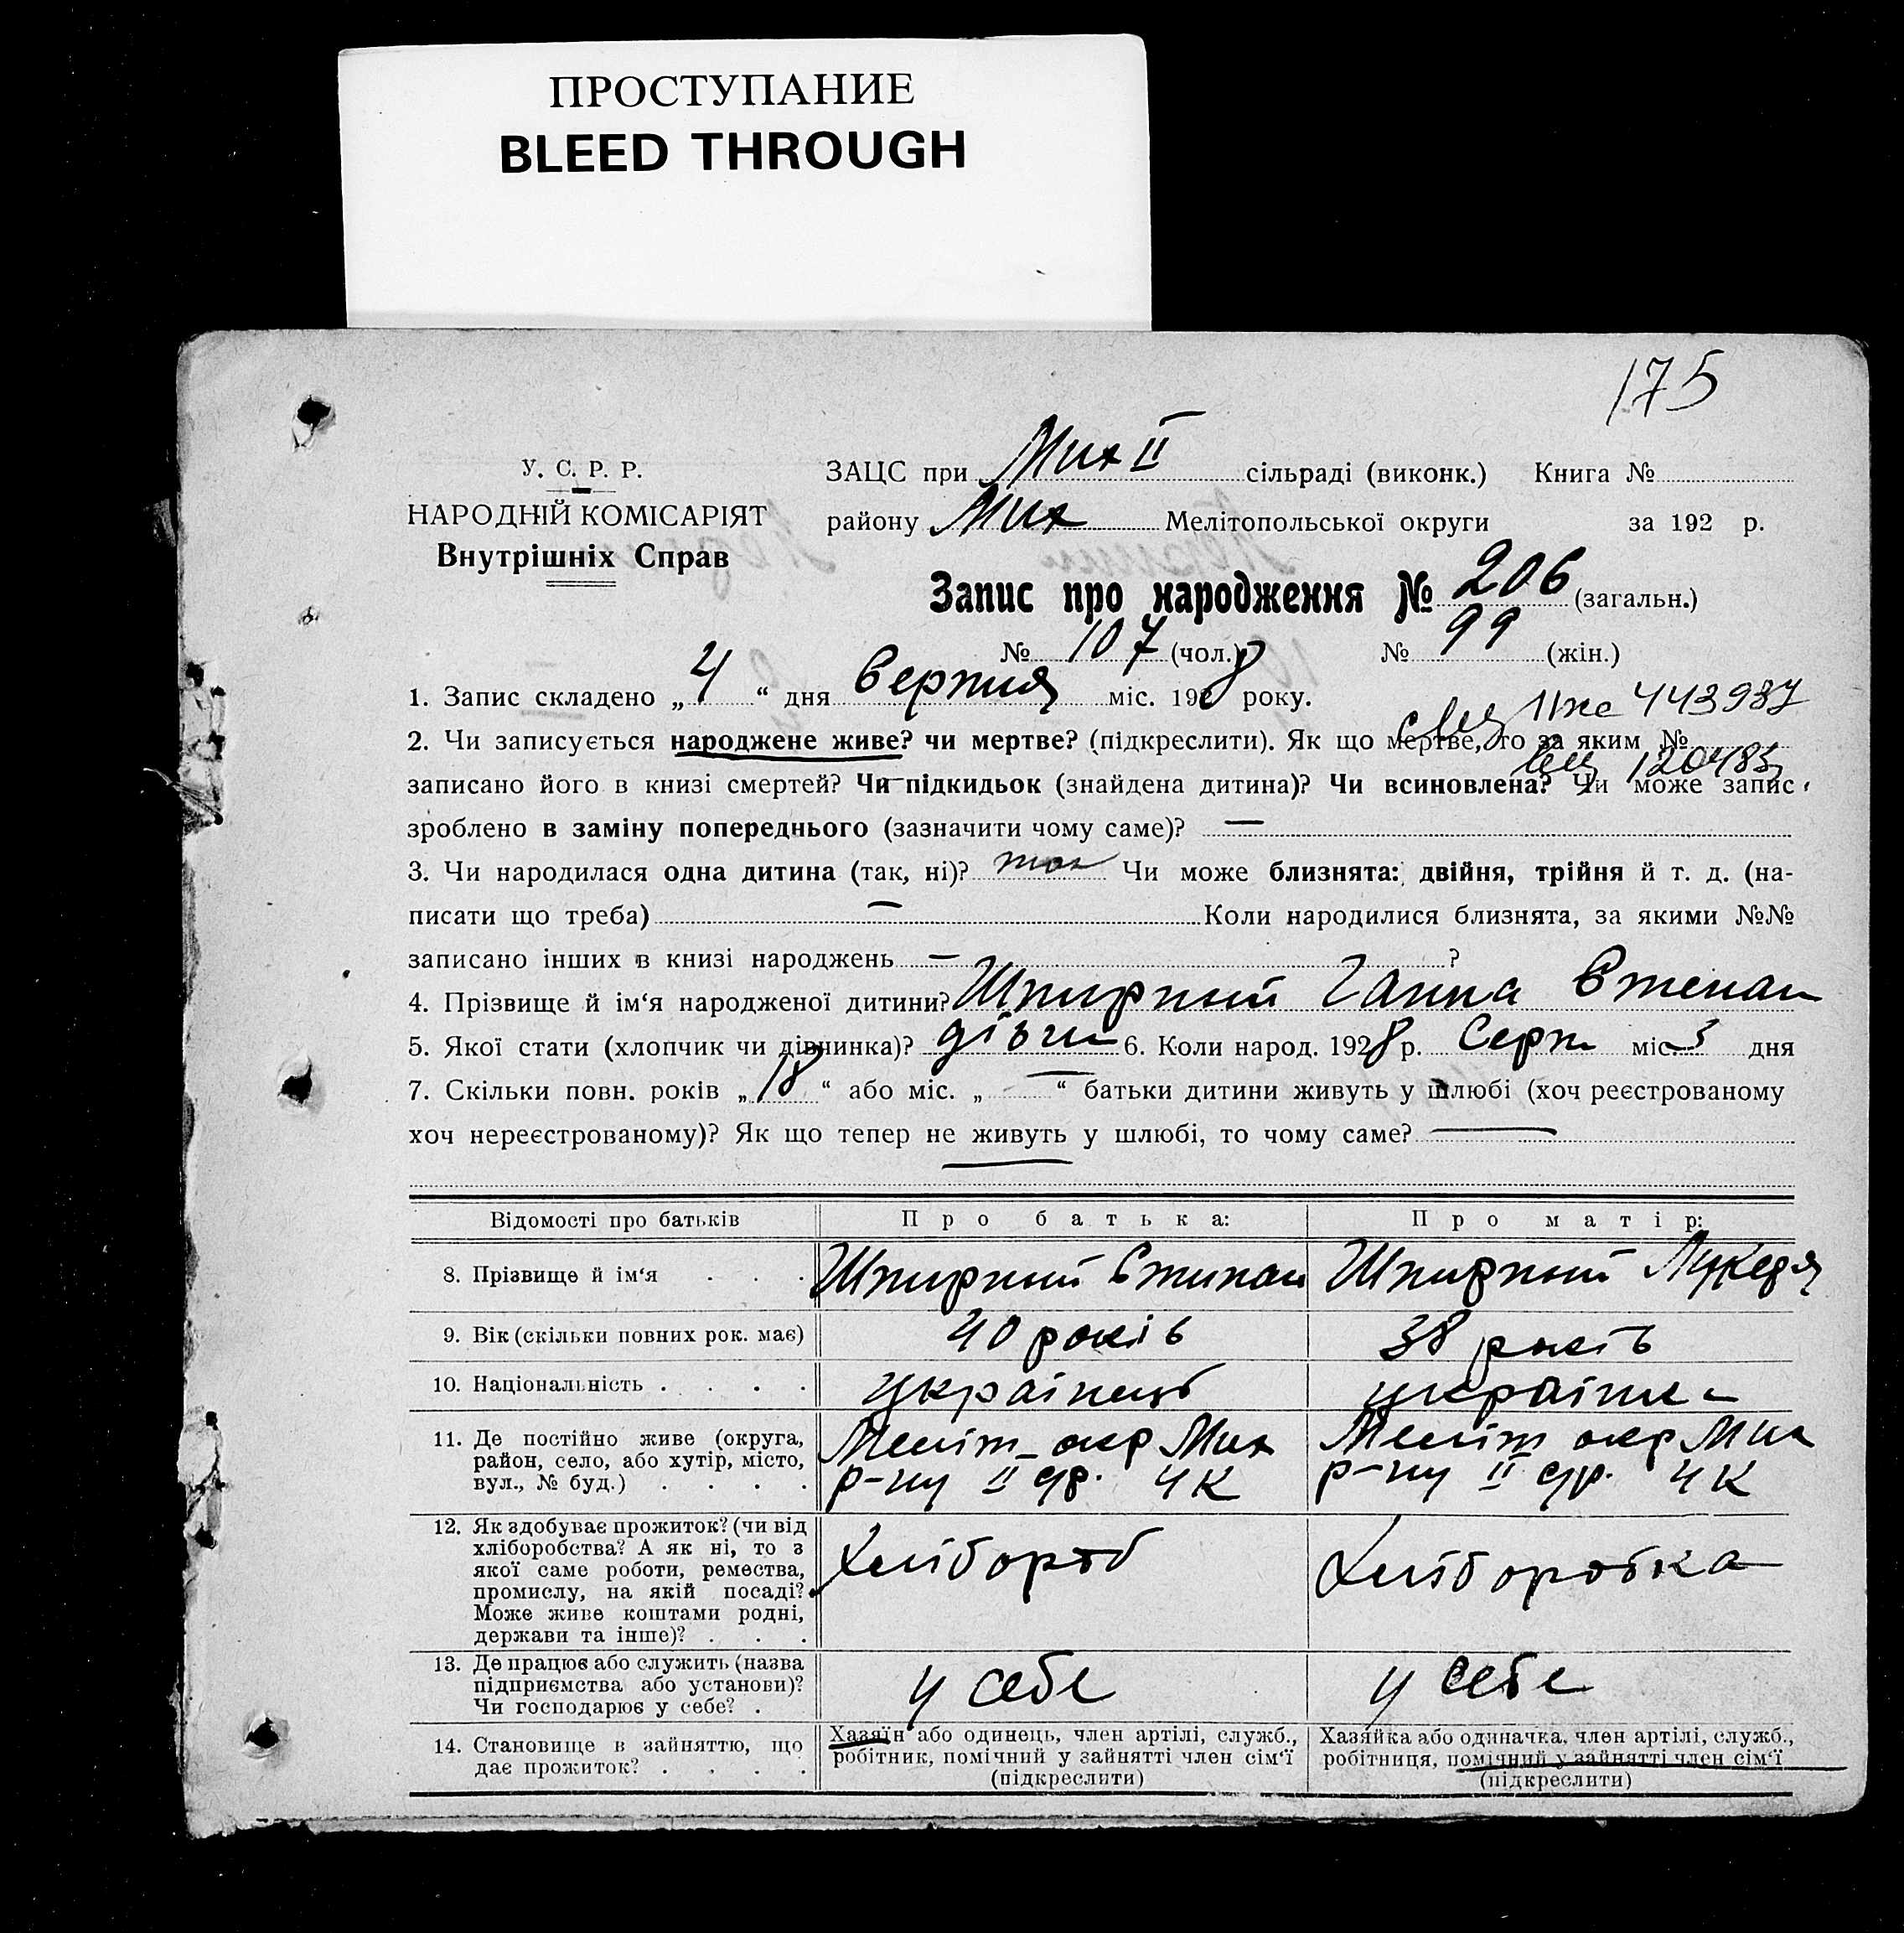 ПРОСТУПАНИЕ
BLEED THROUGH
175
У. С. Р. Р.
НАРОДНІЙ КОМІСАРІЯТ
Внутрішніх Справ
ЗАЦС при Мих II сільраді (виконк.) Книга №
району Мих Мелітопольської округи за 192 р.
Запис про народження № 206 (загальн.)
№ 107 (чол.) № 99 (жін.)
1. Запис складено „ 4 “ дня Серпня міс. 1928 року.
443937
2. Чи записується народжене живе? чи мертве? (підкреслити). Як що мертве, то за яким №
120485
записано його в книзі смертей? Чи підкидьок (знайдена дитина)? Чи всиновлена? Чи може запис
зроблено в заміну попереднього (зазначити чому саме)? —
3. Чи народилася одна дитина (так, ні)? так Чи може близнята: двійня, трійня й т. д. (на-
писати що треба) — Коли народилися близнята, за якими №№
записано інших в книзі народжень — ?
4. Прізвище й ім‘я народженої дитини? Шпирний Ганна Степан
5. Якої стати (хлопчик чи дівчинка)? дівчи 6. Коли народ. 1928 р. Серп міс. 3 дня
7. Скільки повн. років „ 18 “ або міс. „ — “ батьки дитини живуть у шлюбі (хоч реєстрованому
хоч нереєстрованому)? Як що тепер не живуть у шлюбі, то чому саме? —
Відомості про батьків Про батька: Про матір:
8. Прізвище й ім‘я . . . Шпирний Стипан Шпирний Лукеря
9. Вік (скільки повних рок. має) 40 років 38 років
10. Національність . . . . українець українка
11. Де постійно живе (округа,
район, село, або хутір, місто,
вул., № буд.) . . . .
Меліт-окр Мих
р-ну II 4К
Меліт окр Мих
р-ну II 4К
12. Як здобуває прожиток? (чи від
хліборобства? А як ні, то з
якої саме роботи, ремества,
промислу, на якій посаді?
Може живе коштами родні,
держави та інше)? . . .
Хлібороб
Хліборобка
13. Де працює або служить (назва
підприємства або установи)?
Чи господарює у себе? .
у себе
у себе
14. Становище в зайняттю, що
дає прожиток? . . . .
Хазяїн або одинець, член артілі, служб.,
робітник, помічний у зайнятті член сім‘ї
(підкреслити)
Хазяйка або одиначка, член артілі, служб.,
робітниця, помічний у зайнятті член сім‘ї
(підкреслити)